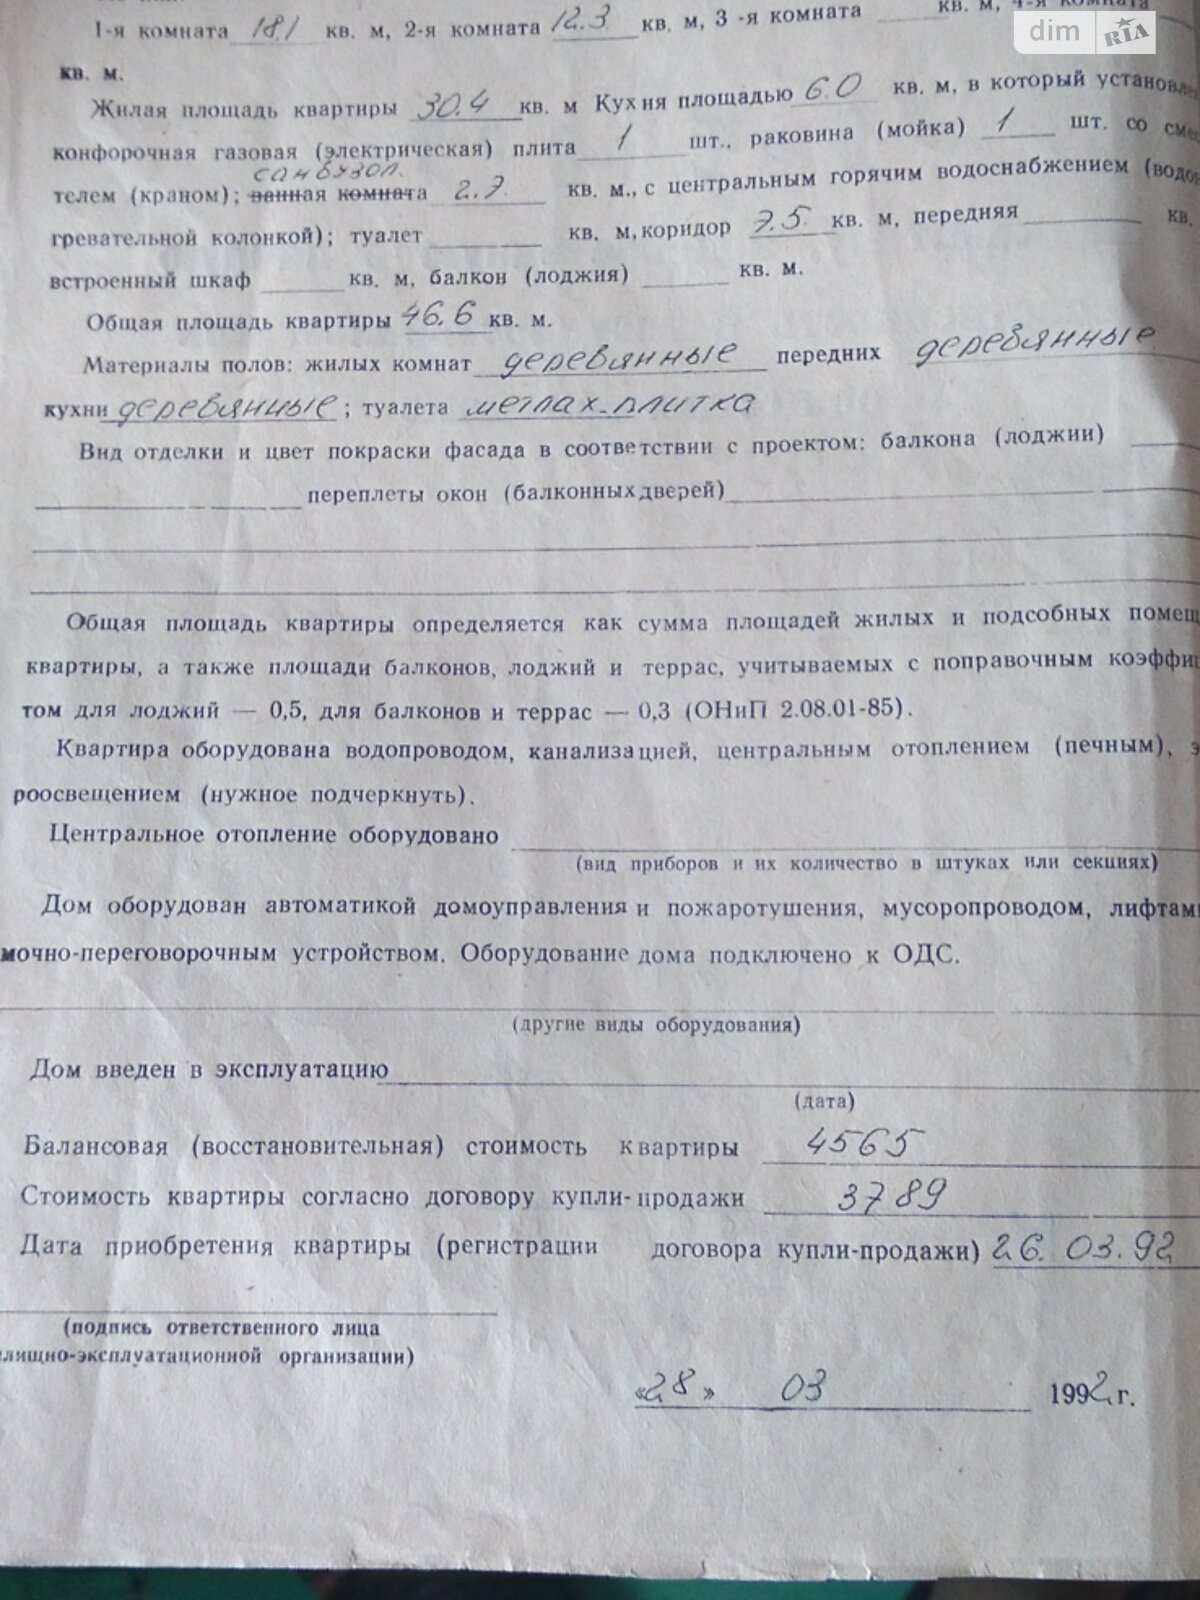 1-я комната 18.1 кв. м, 2-я комната 12.3 кв. м, 3 -я комната кв. м, 4-я комната
dim RIA
кв. м.
Жилая площадь квартиры 30.4 кв. м Кухня площадью 6.0 кв. м, в который установле
конфорочная газовая (электрическая) плита 1 шт., раковина (мойка) 1 шт. со сме
санвузол.
телем (краном); ванная комната 2.7. кв. м., с центральным горячим водоснабжением (водон
гревательной колонкой); туалет кв. м, коридор 7.5 кв. м, передняя кв.
встроенный шкаф кв. м, балкон (лоджия) кв. м.
Общая площадь квартиры 46.6 кв. м.
Материалы полов: жилых комнат деревянные передних деревянные
кухни деревянные; туалета метлах-плитка
Вид отделки и цвет покраски фасада в соответствии с проектом: балкона (лоджии)
переплеты окон (балконных дверей)
Общая площадь квартиры определяется как сумма площадей жилых и подсобных помещ
квартиры, а также площади балконов, лоджий и террас, учитываемых с поправочным коэффиц
том для лоджий — 0,5, для балконов и террас — 0,3 (ОНиП 2.08.01-85).
Квартира оборудована водопроводом, канализацией, центральным отоплением (печным), э
роосвещением (нужное подчеркнуть).
Центральное отопление оборудовано
(вид приборов и их количество в штуках или секциях)
Дом оборудован автоматикой домоуправления и пожаротушения, мусоропроводом, лифтами
мочно-переговорочным устройством. Оборудование дома подключено к ОДС.
(другие виды оборудования)
Дом введен в эксплуатацию
(дата)
Балансовая (восстановительная) стоимость квартиры 4565
Стоимость квартиры согласно договору купли-продажи 3789
Дата приобретения квартиры (регистрации договора купли-продажи) 26.03.92
(подпись ответственного лица
лищно-эксплуатационной организации)
«28» 03 1992 г.